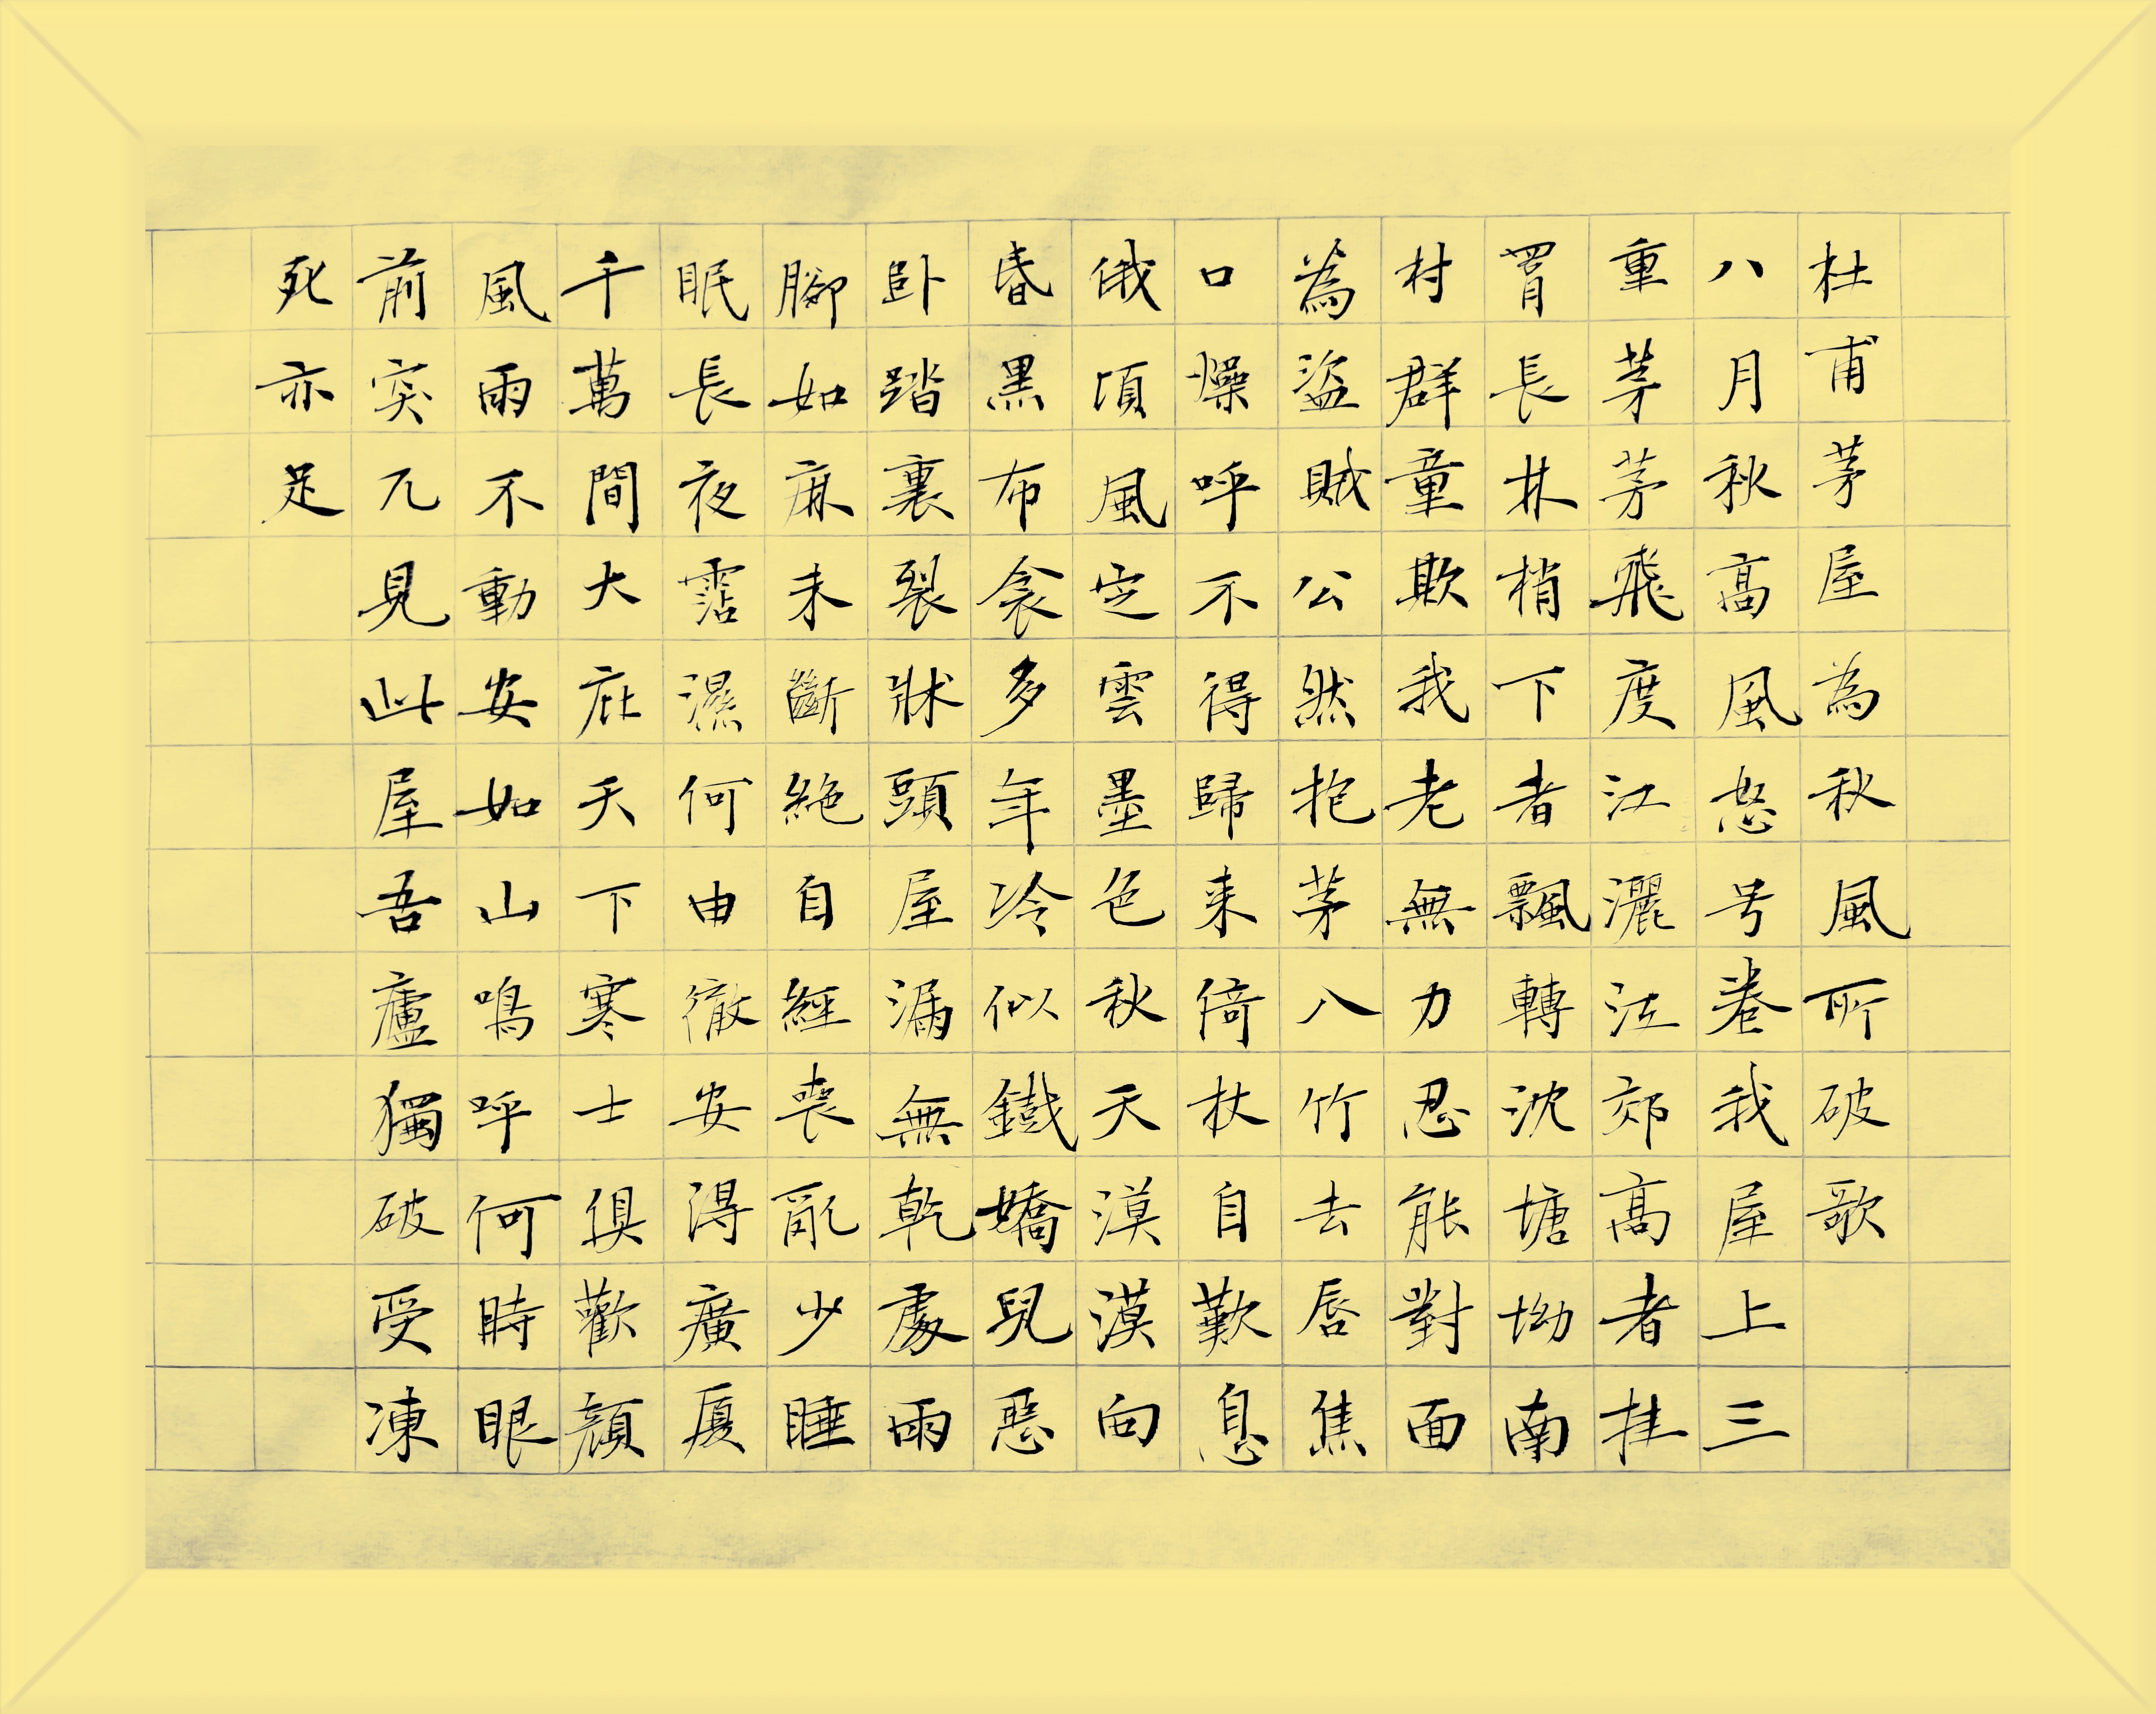 杜甫茅屋為秋風所破歌
八月秋高風怒号卷我屋上三
重茅茅飛度江灑江郊高者挂
罥長林梢下者飄轉沈塘坳南
村群童欺我老無力忍能對面
為盜賊公然抱茅入竹去唇焦
口燥呼不得歸来倚杖自歎息
俄頃風定雲墨色秋天漠漠向
昏黑布衾多年冷似鐵嬌兒惡
卧踏裏裂牀頭屋漏無乾處雨
腳如麻未斷絶自經喪亂少睡
眠長夜霑濕何由徹安得廣厦
千萬間大庇天下寒士俱歡顔
風雨不動安如山鳴呼何時眼
前突兀見此屋吾廬獨破受凍
死亦足